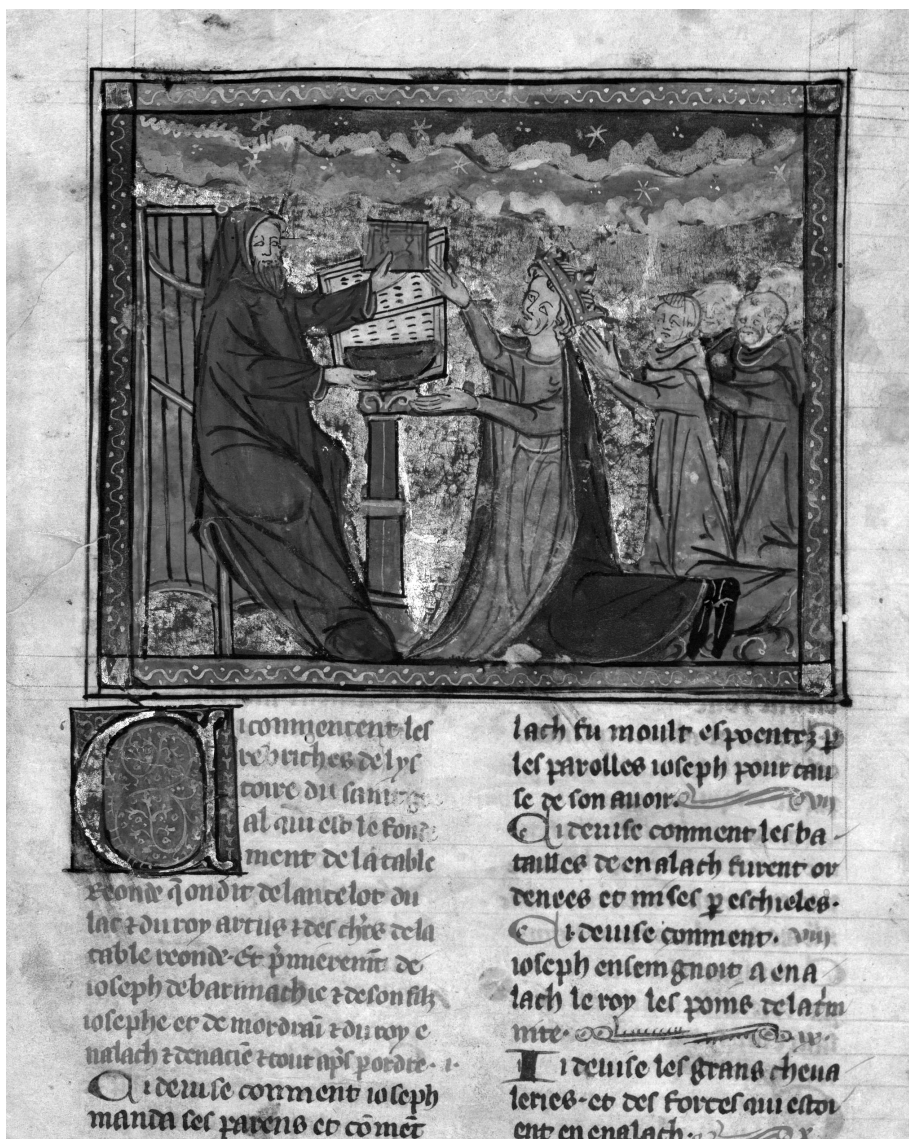 Ci commencent les
rebriches de lys
toire du saint gre
al qui est le fonde
ment de la table
reonde q̄ on dit de lancelot du
lac ⁊ du roy artus ⁊ des chr̄s de la
table reonde· Et p̄mierem̄t de
ioseph de barimachie ⁊ de son filz
iosephe et de mordrai ⁊ du roy e
nalach ⁊ de nacie ⁊ tout ap̄s p ordre· i·
Ci deuise comment ioseph
manda ses parens et cōmēt
lach fu moult espoentez p
les parolles ioseph pour cau
se de son auoir· vii
Ci deuise comment les ba
tailles de enalach furent or
denees et mises p eschieles·
Ci deuise comment· viii
ioseph enseingnoit a ena
lach le roy les poins de la t̄ni
nite· ix
Ii deuise les grans cheua
leries· et des forces qui estoi
ent en enalach· x